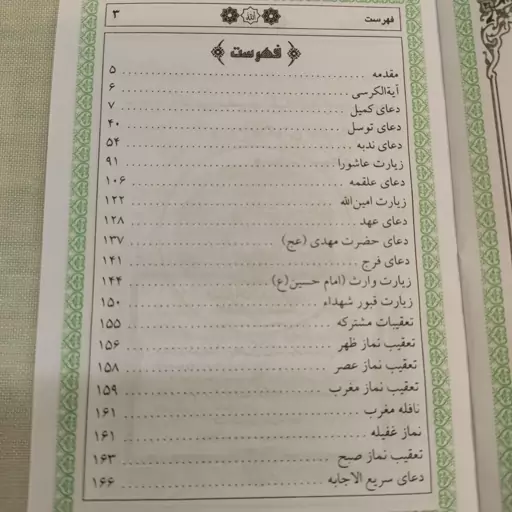 فهرست الله ۳
فهرست
مقدمه ۵
آیةالکرسی ۶
دعای کمیل ۷
دعای توسل ۴۰
دعای ندبه ۵۴
زیارت عاشورا ۹۱
دعای علقمه ۱۰۶
زیارت امین‌الله ۱۲۲
دعای عهد ۱۲۸
دعای حضرت مهدی (عج) ۱۳۷
دعای فرج ۱۴۱
زیارت وارث (امام حسین(ع) ۱۴۴
زیارت قبور شهداء ۱۵۰
تعقیبات مشترکه ۱۵۵
تعقیب نماز ظهر ۱۵۶
تعقیب نماز عصر ۱۵۸
تعقیب نماز مغرب ۱۵۹
نافله مغرب ۱۶۱
نماز غفیله ۱۶۱
تعقیب نماز صبح ۱۶۳
دعای سریع الاجابه ۱۶۶